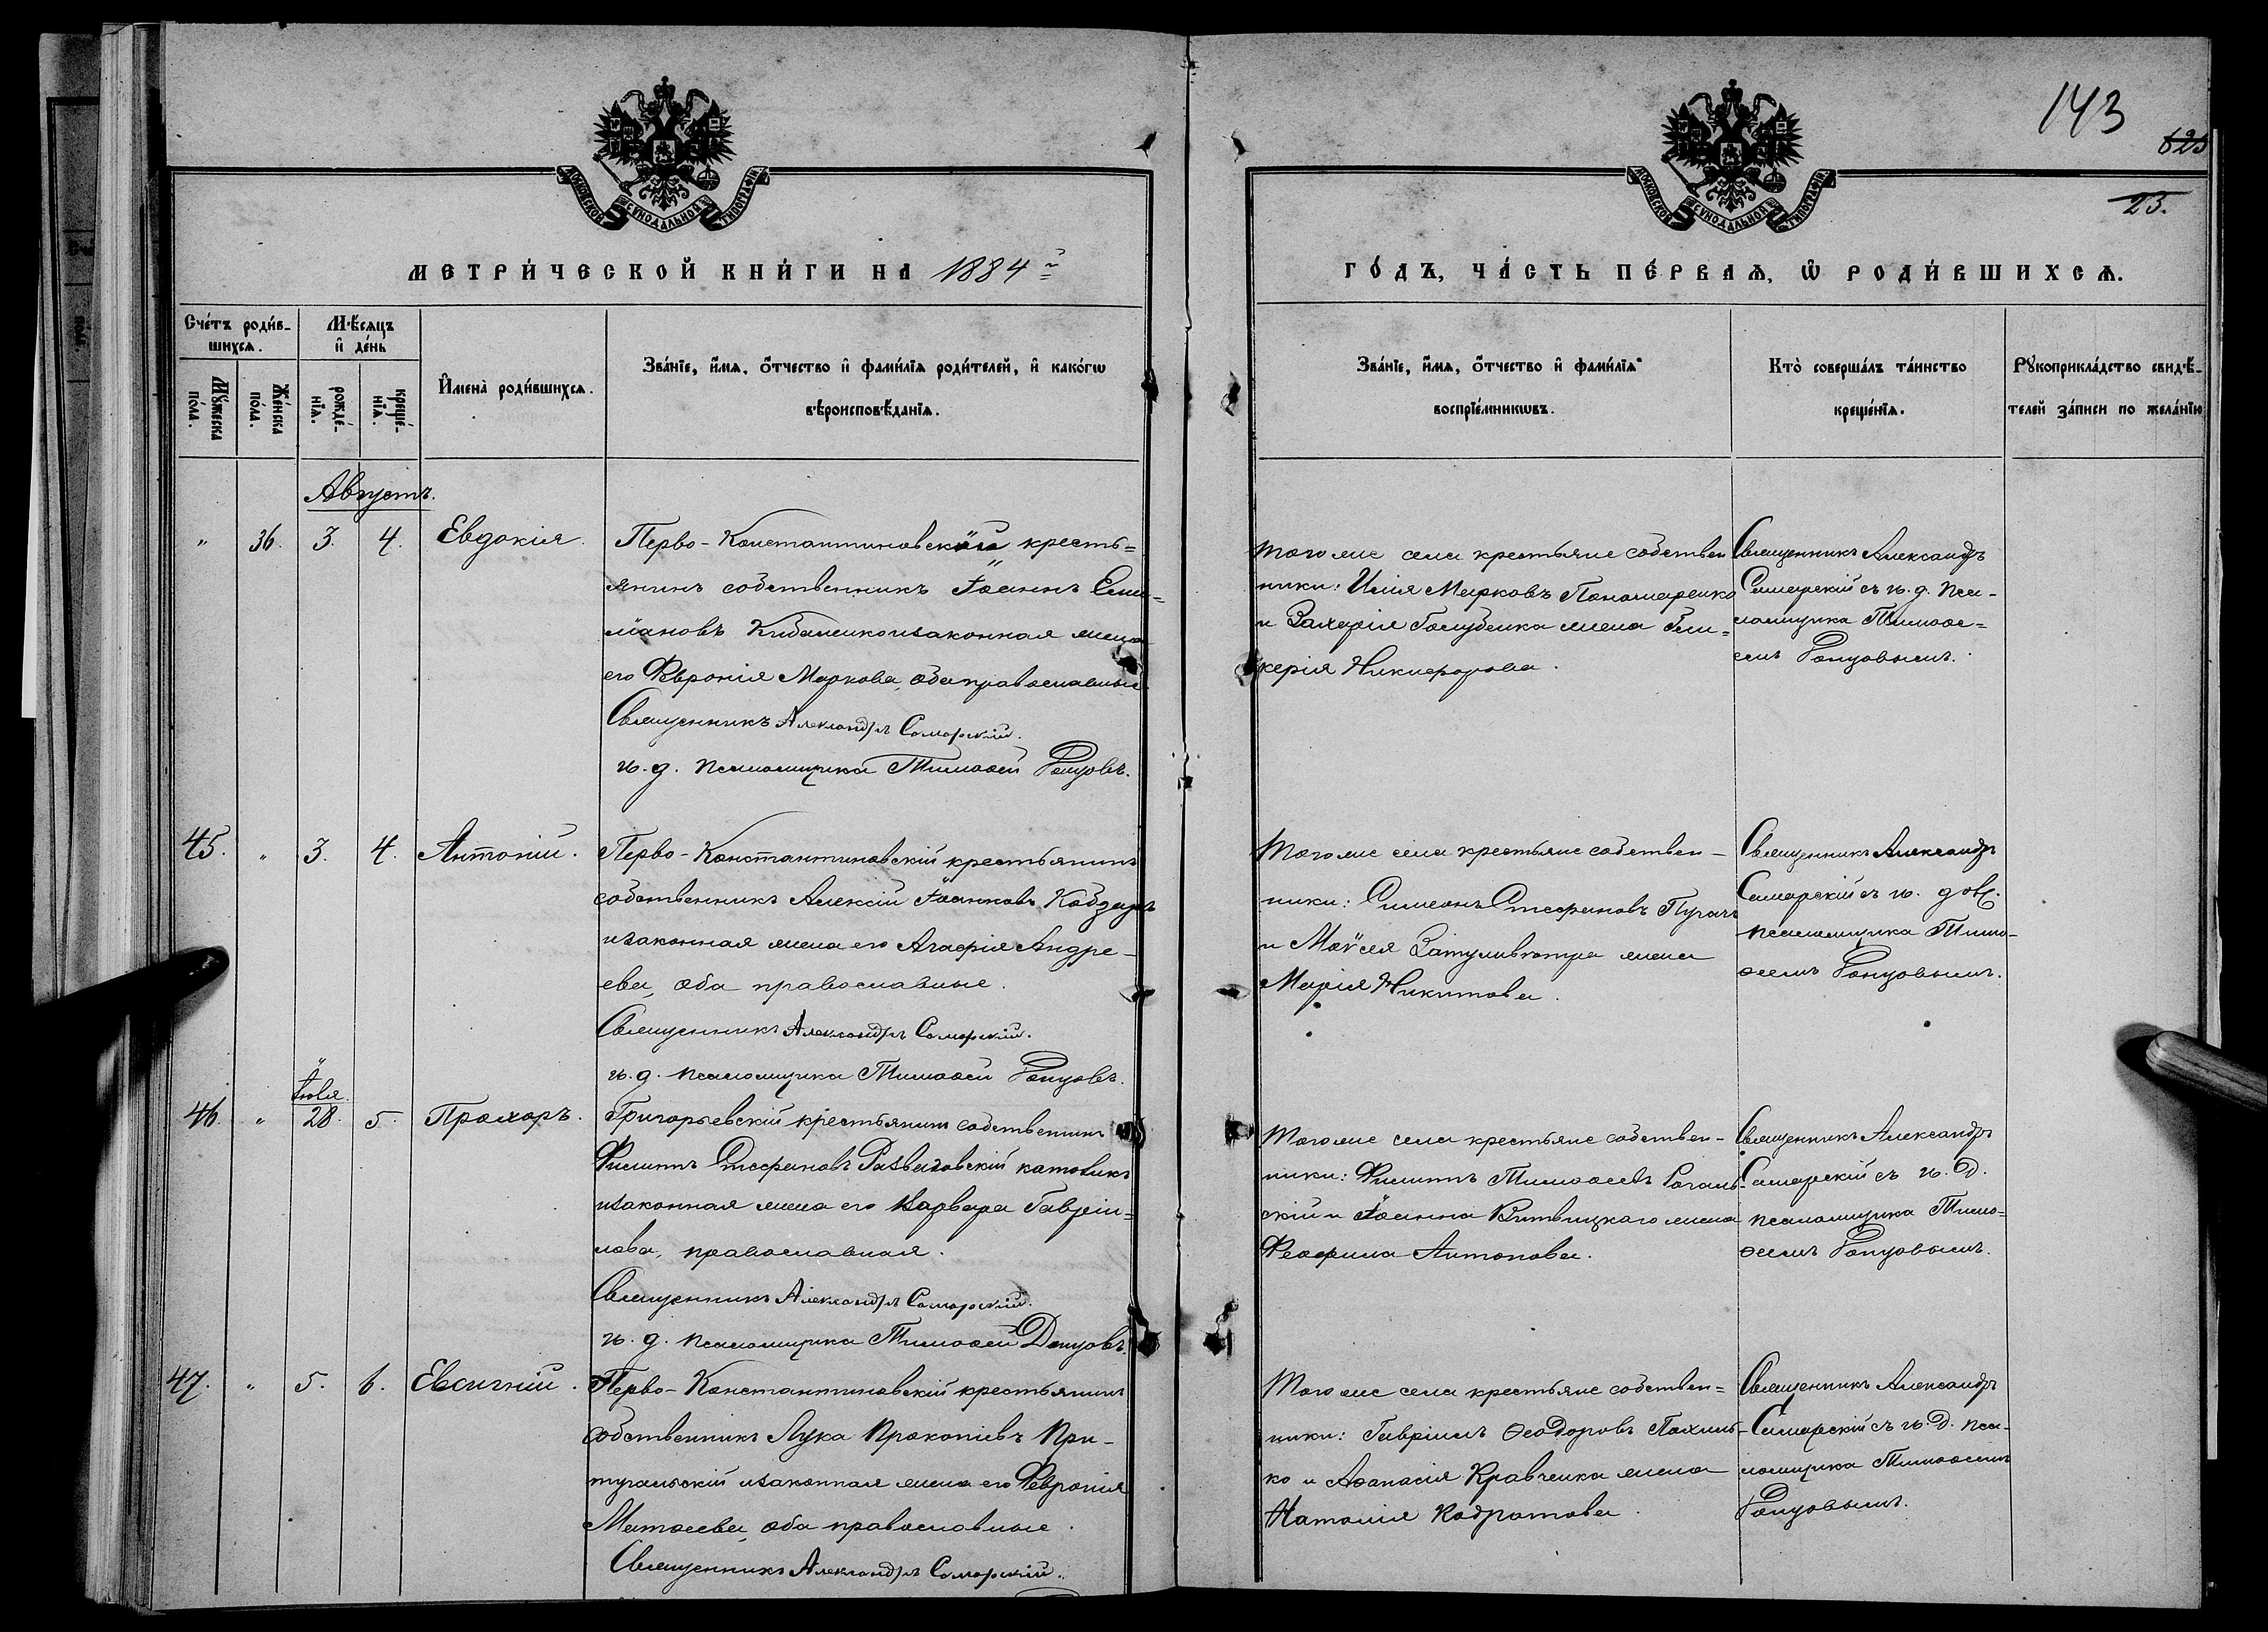 143
623
23.
МОСКОВСКОЙ СѴНОДАЛЬНОЙ ТИПОГРАФІИ
МОСКОВСКОЙ СѴНОДАЛЬНОЙ ТИПОГРАФІИ
МЕТРИ́ЧЕСКОЙ КНИ́ГИ НА 1884 й
ГО́ДЪ, ЧА́СТЬ ПЕ́РВАѦ, Ѿ РОДИ́ВШИХСѦ.
Сче́тъ роди́в-
шихсѧ.
Мѣ́сѧцъ
и҆ де́нь
Мꙋ́жеска по́ла.
Же́нска по́ла.
рожде́-
нїѧ.
креще́-
нїѧ.
И҆мена̀ роди́вшихсѧ.
Зва́нїе, и҆́мѧ, ѻ҆́тчество и҆ фами́лїѧ роди́телей, и҆ како́гѡ
вѣроисповѣ́данїѧ.
Зва́нїе, и҆́мѧ, ѻ҆́тчество и҆ фами́лїѧ
воспрїе́мникѡвъ.
Кто̀ соверша́лъ та́инство
креще́нїѧ.
Рꙋкоприкла́дство свидѣ́-
телей за́писи по жела́нїю
Августъ.
" 36. 3. 4. Евдокія.
Перво-Константиновскій кресть=
янинъ собственникъ Іоаннъ
законная жена
его Февронія Маркова, оба православные.
Священникъ Александръ Самарскій.
и. д. псаломщика Тимоѳей
Тогоже села крестьяне собствен
ники: Илія Марковъ Пономаренко
и Захарія Голубенка жена Гли=
керія Никифорова.
Священникъ Александръ
Самарскій съ и. д. пса-
ломщика Тимоѳе=
емъ
45. " 3. 4. Антоній.
Перво-Константиновскій крестьянинъ
собственникъ Алексій Іоанновъ Кобзарь
и законная жена его Агафія Андре-
ева, оба православные.
Священникъ Александръ Самарскій.
и. д. псаломщика Тимоѳей
Тогоже села крестьяне собствен-
ники: Симеонъ Стефановъ Пугачъ
и Моѵсея жена
Марія Никитова.
Священникъ Александръ
Самарскій съ и. долж.
псаломщика Тимо-
ѳеемъ
Іюля
46. " 28. 5. Прохоръ.
Григорьевскій крестьянинъ собственникъ
Филиппъ Стефановъ католикъ
и законная жена его Варвара Гавріи=
лова, православная.
Священникъ Александръ Самарскій.
и. д. псаломщика Тимоѳей
Тогоже села крестьяне собствен-
ники: Филиппъ Тимоѳеевъ Рогаль-
скій и Іоанна Витвицкаго жена
Феофила Антонова.
Священникъ Александръ
Самарскій съ и. д.
псаломщика Тимо-
ѳеемъ
47. " 5. 6. Евсигній.
Перво-Константиновскій крестьянинъ
собственникъ Лука Прокопіевъ При-
тугальскій и законная жена его Февронія
Матѳеева, оба православные.
Священникъ Александръ Самарскій.
Тогоже села крестьяне собствен=
ники: Гавріилъ Ѳеодоровъ Пахиль-
ко и Аѳанасія Кравченка жена
Наталія Кодратова.
Священникъ Александръ
Самарскій съ и. д. пса-
ломщика Тимоѳеемъ